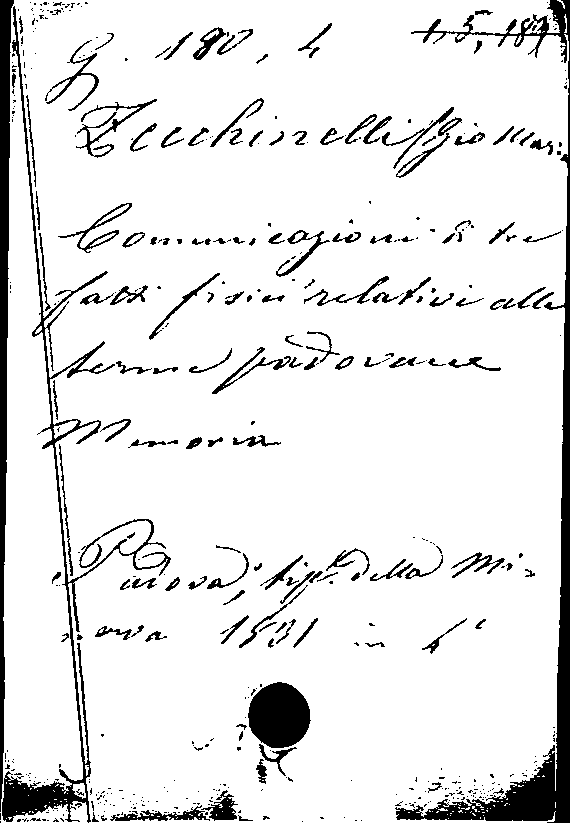 G. 180, 4 1, 5, 189
Zecchinelli Gio Maria
Comunicazioni di tre
fatti fisici relativi alle
terme padovane
Memoria
Padova, tip. della Mi-
nerva 1831 in 4°